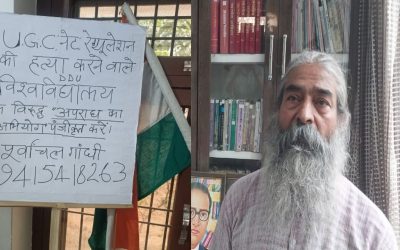 U.G.C. नेट रेगुलेशन
की हत्या करने वाले
DDU
विश्वविद्यालय
के विरुद्ध "अपराध का
अभियोग पंजीकृत करें।
पूर्वांचल गांधी
9415418263